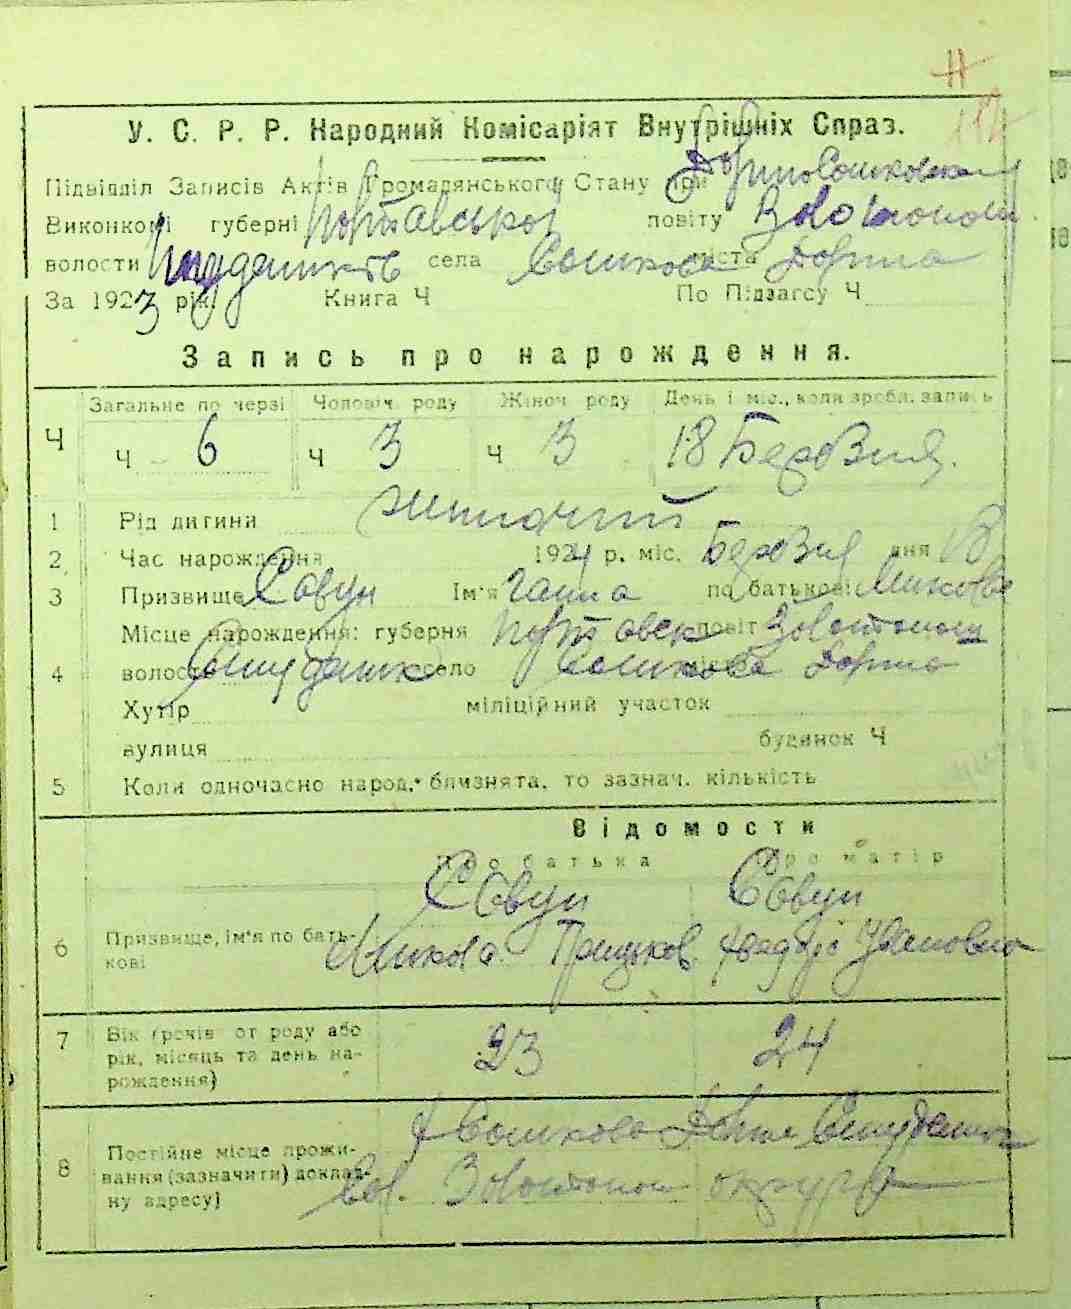 У. С. Р. Р. Народний Комісаріят Внутрішніх Справ.
Підвідділ Записів Актів Громадянського Стану при
Виконкомі губерні Полтавської повіту Золотонош.
волости села Сошкова міста
За 1923 рік. Книга Ч По Підзагсу Ч
Запись про народження.
Загальне по черзі Чоловіч. роду Жіноч. роду День і міс., коли зробл. запись
Ч Ч 6 Ч 3 Ч 3 18 Березня.
1 Рід дитини жиночий
2 Час народження 1924 р. міс. Березня дня 18
3 Призвище Савун Ім'я Ганна по батькові Микова
Місце народження: губерня Полтавск повіт Золотонош
4 волость село Сошкова
Хутір міліційний участок
вулиця будинок Ч
5 Коли одночасно народ. близнята, то зазнач. кількість
Відомости
Про батька Про матір
Савун Савун
6 Призвище, ім'я по бать-
кові Микола Грицьков. Івановна
7 Вік (років от роду або
рік, місяць та день на-
рождення) 23 24
8 Постійне місце прожи-
вання (зазначити) доклад-
ну адресу) Сошкова
Золотонош округа